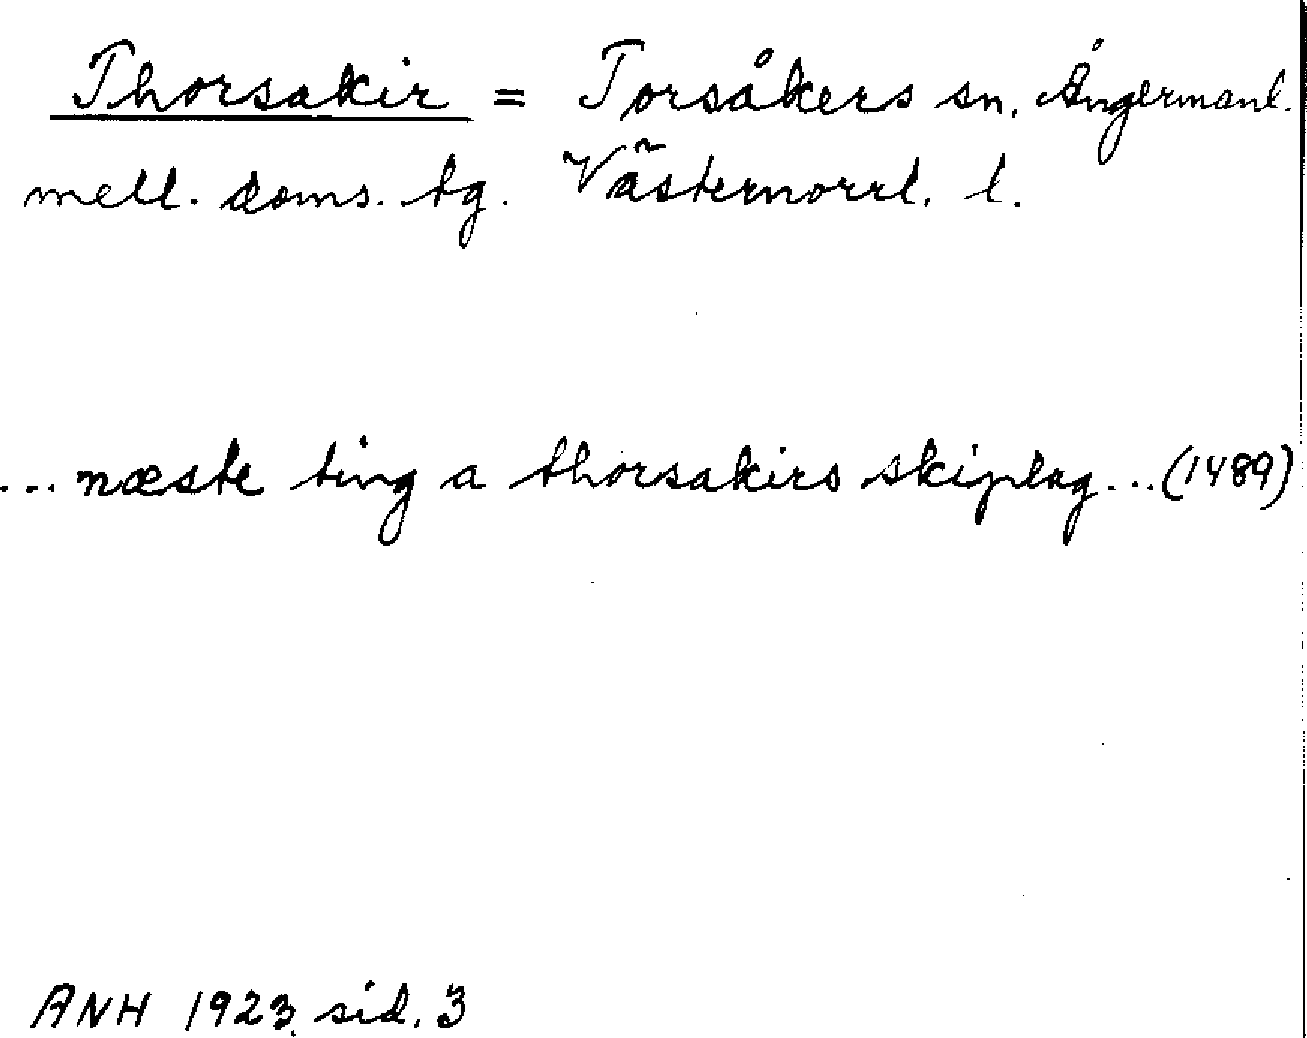 Thorsakir = Torsåkers sn, Ångermanl.
mell. doms. tg. Västernorrl. l.
... næste ting a thorsakirs skiplag... (1489)
ANH 1923 sid. 3